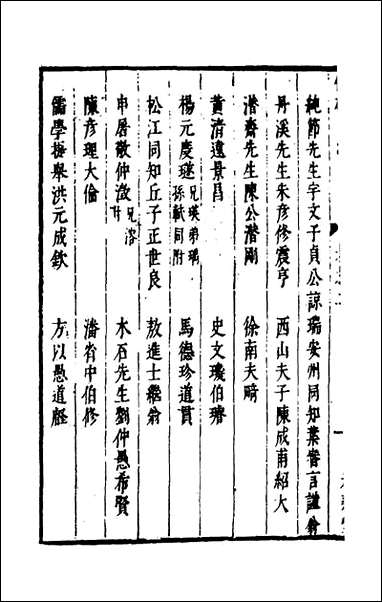 純節先生宇文子貞公諒 瑞安州同知葉審言謹翁
丹溪先生朱彥修震亨 西山夫子陳成甫紹大
潛齋先生陳公潛剛 徐南夫疇
黃清遠景昌 史文璣伯璿
楊元慶璲 兄瑛弟瑀孫軾同附 馬德珍道貫
松江同知丘子正世良 敖進士繼翁
申屠敬仲澂 兄洛附 木石先生劉仲愚希賢
陳彥理大倫 潘省中伯修
儒學提舉洪元成欽 方以愚道叡